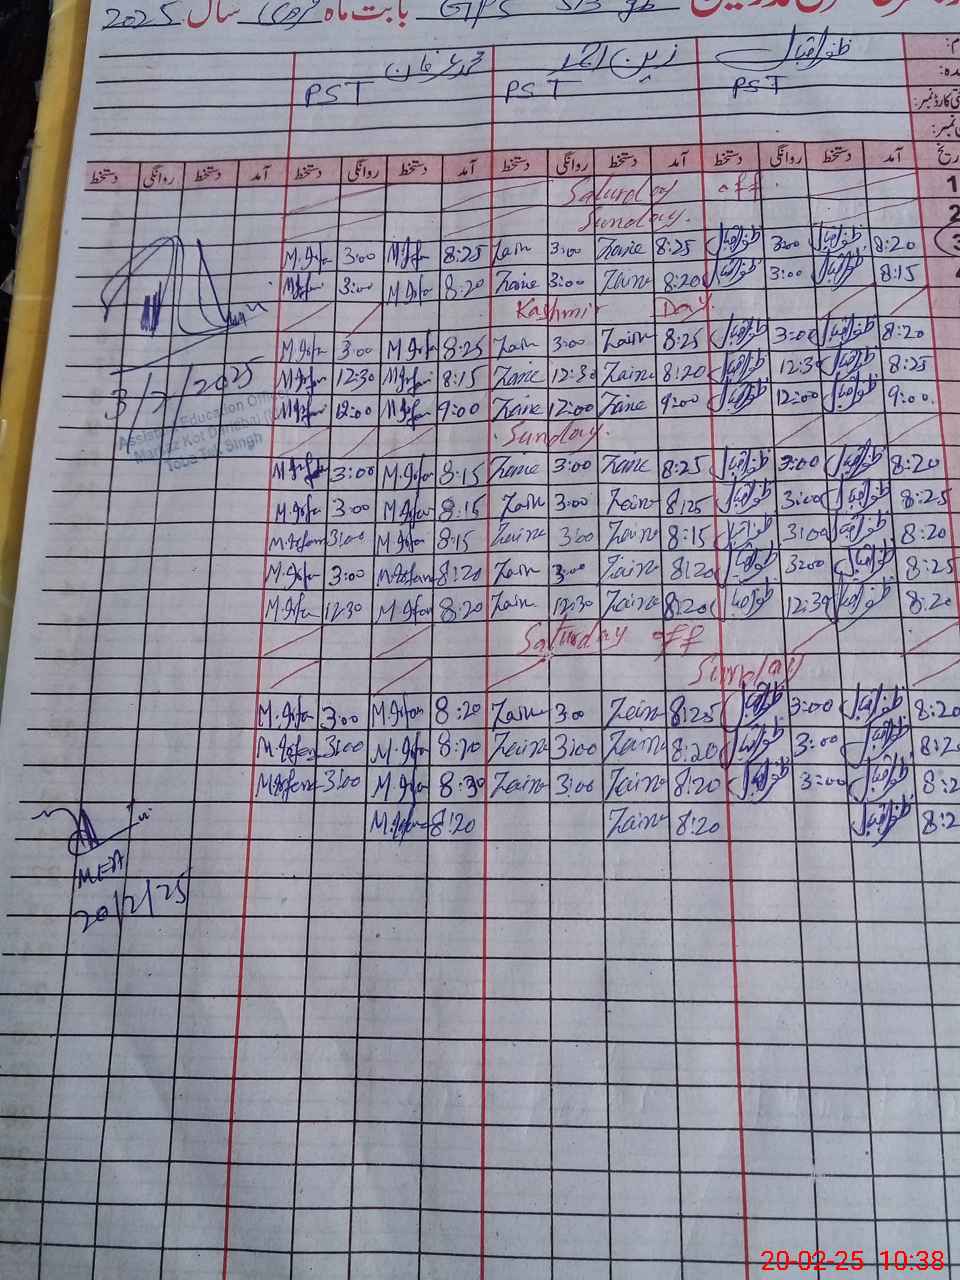 بابت ماہ فروری سال 2025
ظفر اقبال زین احمد محمد عرفان
PST PST PST
آمد دستخط روانگی دستخط آمد دستخط روانگی دستخط آمد دستخط روانگی دستخط آمد دستخط روانگی دستخط
1 Saturday off.
2 Sunday.
3 M.Irfan 3:00 M.Irfan 8:25 Zain 3:00 Zain 8:25 ظفر اقبال 3:00 ظفر اقبال 8:20
M.Irfan 3:00 M.Irfan 8:20 Zain 3:00 Zain 8:20 ظفر اقبال 3:00 ظفر اقبال 8:15
Kashmir Day.
M.Irfan 3:00 M.Irfan 8:25 Zain 3:00 Zain 8:25 ظفر اقبال 3:00 ظفر اقبال 8:20
M.Irfan 12:30 M.Irfan 8:15 Zain 12:30 Zain 8:20 ظفر اقبال 12:30 ظفر اقبال 8:25
M.Irfan 12:00 M.Irfan 9:00 Zain 12:00 Zain 9:00 ظفر اقبال 12:00 ظفر اقبال 9:00.
Sunday.
M.Irfan 3:00 M.Irfan 8:15 Zain 3:00 Zain 8:25 ظفر اقبال 3:00 ظفر اقبال 8:20
M.Irfan 3:00 M.Irfan 8:15 Zain 3:00 Zain 8:25 ظفر اقبال 3:00 ظفر اقبال 8:25
M.Irfan 3:00 M.Irfan 8:15 Zain 3:00 Zain 8:15 ظفر اقبال 3:00 ظفر اقبال 8:20
M.Irfan 3:00 M.Irfan 8:20 Zain 3:00 Zain 8:20 ظفر اقبال 3:00 ظفر اقبال 8:25
M.Irfan 12:30 M.Irfan 8:20 Zain 12:30 Zain 8:20 ظفر اقبال 12:30 ظفر اقبال 8:20
Saturday off
Sunday
M.Irfan 3:00 M.Irfan 8:20 Zain 3:00 Zain 8:25 ظفر اقبال 3:00 ظفر اقبال 8:20
M.Irfan 3:00 M.Irfan 8:20 Zain 3:00 Zain 8:20 ظفر اقبال 3:00 ظفر اقبال
M.Irfan 3:00 M.Irfan 8:30 Zain 3:00 Zain 8:20 ظفر اقبال 3:00 ظفر اقبال
M.Irfan 8:20 Zain 8:20 ظفر اقبال
3/2/2025
Assistant Education Officer
Markaz Kot
Toba Tek Singh
MEA
20/2/25
20-02-25 10:38